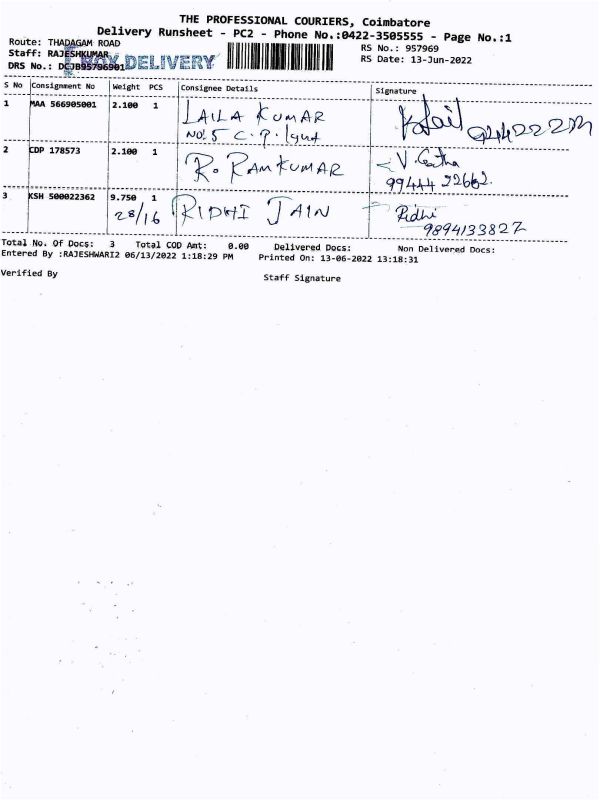 THE PROFESSIONAL COURIERS, Coimbatore
Delivery Runsheet - PC2 - Phone No.:0422-3505555 - Page No.:1
Route: THADAGAM ROAD
RS No.: 957969
Staff: RAJESHKUMAR
BOX DELIVERY
RS Date: 13-Jun-2022
DRS No.: DCJB95796901
S No Consignment No Weight PCS Consignee Details Signature
1 MAA 566905001 2.100 1 LAILA KUMAR
NO: 5 C.P.
2 CDP 178573 2.100 1 R. RAMKUMAR V. Geetha
99444 22662.
3 KSH 500022362 9.750 1 RIDHI JAIN Ridhi
28/16 9894133827
Total No. Of Docs: 3 Total COD Amt: 0.00 Delivered Docs: Non Delivered Docs:
Entered By :RAJESHWARI2 06/13/2022 1:18:29 PM Printed On: 13-06-2022 13:18:31
Verified By Staff Signature